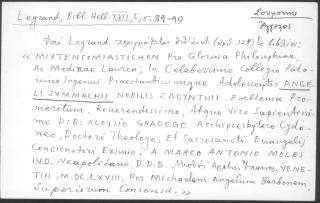 Legrand, Bibl. Hell. XVII, 5, σ. 89-90
Ἄγγελος
Legrand περιγράφει (ἀρ. 128) βιβλίον:
« MIXTENCOMIASTICHEN Pro Gloria Philosophiae,
Ac Medicae Laurea, In Celeberrimo Collegio Pata-
Ingenui Praestantissimique Adolescentis ANGE-
LI SYMMACHII NOBILIS ZACYNTHII Emblema Pro-
meritum, Reverendissimo, Atque Viro Sapientissi-
mo D: D: ALOYSIO GRADEGO Archipresbytero Cydo-
neo, Doctori Theologo, Et Sacrosancti Evangelij
Concionatori Eximio, A MARCO ANTONIO MOLES
Neapolitano. D.D.D. VENE-
TIIS, M.DC.LXVIII, Per Michaelem Angelum Barbonem,
Superiorum Consensu. »